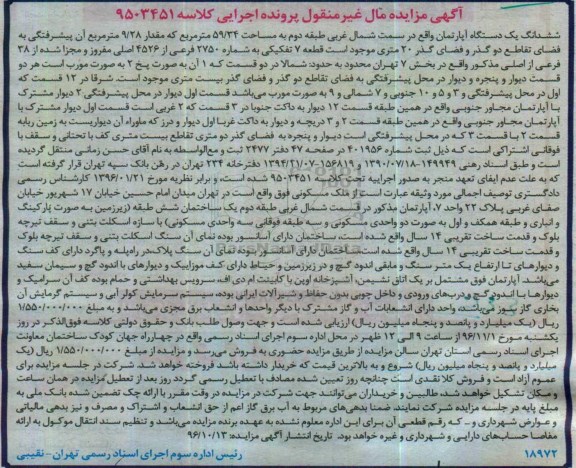 آگهی مزایده مال غیرمنقول پرونده اجرایی کلاسه ۹۵۰۳۴۵۱
ششدانگ یک دستگاه آپارتمان واقع در سمت شمال غربی طبقه دوم به مساحت ۵۹/۳۴ مترمربع که مقدار ۹/۲۸ مترمربع آن پیشرفتگی به
فضای تقاطع دو گذر و فضای گذر ۲۰ متری موجود است قطعه ۷ تفکیکی به شماره ۲۷۵۰ فرعی از ۴۵۲۶ اصلی مفروز و مجزا شده از ۳۸
فرعی از اصلی مذکور واقع در بخش ۷ تهران محدود به حدود: شمالا در دو قسمت که ۱ آن به صورت پخ ۲ به صورت مورب است هر دو
قسمت دیوار و پنجره و دیوار در محل پیشرفتگی به فضای تقاطع دو گذر و فضای گذر بیست متری موجود است. شرقا در ۱۲ قسمت که
اول در محل پیشرفتگی و ۳ و ۵ و ۱۰ جنوبی و ۷ شمالی و ۹ به صورت مورب می‌باشد قسمت اول دیوار در محل پیشرفتگی ۲ دیوار مشترک
با آپارتمان مجاور جنوبی واقع در همین طبقه قسمت ۱۲ دیوار به داکت جنوبا در ۳ قسمت که ۲ غربی است قسمت اول دیوار مشترک با
آپارتمان مجاور جنوبی واقع در همین طبقه قسمت ۲ و ۳ دریچه و دیوار به داکت غربا اول دیوار و درز که ماوراء آن دیواریست به زمین ربابه
قسمت ۲ با قسمت ۳ که در محل پیشرفتگی است دیوار و پنجره به فضای گذر دو متری تقاطع بیست متری کف با تحتانی و سقف با
فوقانی اشتراکی است که ذیل ثبت شماره ۴۰۱۹۵۶ در صفحه ۴۷ دفتر ۲۴۷۷ ثبت و مع‌الواسطه به نام آقای حسن زمانی منتقل گردیده
است و طبق اسناد رهنی ۱۴۹۹۴۹-۱۳۹۰/۰۷/۱۸ و ۱۵۶۸۱۹-۱۳۹۴/۲۱/۰۷ دفترخانه ۲۳۴ تهران در رهن بانک سپه تهران قرار گرفته است
که به علت عدم ایفای تعهد منجر به صدور اجراییه تحت کلاسه ۹۵۰۳۴۵۱ شده است، و برابر نظریه مورخ ۱۳۹۶/۰۱/۲۱ کارشناس رسمی
دادگستری توصیف اجمالی مورد وثیقه عبارت است از: ملک مسکونی فوق واقع است در تهران میدان امام حسین خیابان ۱۷ شهریور خیابان
صفای غربی پلاک ۲۲ واحد ۷، آپارتمان مذکور در قسمت شمال غربی طبقه دوم یک ساختمان شش طبقه (زیرزمین به صورت پارکینگ
و انباری و طبقه همکف و اول به صورت دو واحدی مسکونی و سه طبقه فوقانی سه واحدی مسکونی) با سازه اسکلت بتنی و سقف تیرچه
بلوک و قدمت ساخت تقریبی ۱۴ سال واقع شده است، ساختمان دارای آسانسور بوده نمای آن سنگ اسکلت بتنی و سقف تیرچه بلوک
و قدمت ساخت تقریبی ۱۴ سال واقع شده است، ساختمان دارای آسانسور بوده نمای آن سنگ پلاک در راه‌پله و پاگرد دارای کف سنگ
و دیوارهای تا ارتفاع یک متر سنگ و مابقی اندود گچ و در زیرزمین و حیاط دارای کف موزاییک و دیوارهای با اندود گچ و سیمان سفید
می‌باشد آپارتمان فوق مشتمل بر یک اتاق نشیمن، آشپزخانه اوپن با کابینت ام دی اف، سرویس بهداشتی و حمام بوده کف آن سرامیک و
دیوارها با اندود گچ و درب‌های ورودی و داخل چوبی بدون حفاظ و شیرآلات ایرانی بوده، سیستم سرمایش کولر آبی و سیستم گرمایش آن
بخاری گاز سوز می‌باشد، واحد دارای انشعابات آب و گاز مشترک با دیگر واحدها و انشعاب برق مجزی می‌باشد و به مبلغ ۱/۵۵۰/۰۰۰/۰۰۰
ریال (یک میلیارد و پانصد و پنجاه میلیون ریال) ارزیابی شده است و جهت وصول طلب بانک و حقوق دولتی کلاسه فوق‌الذکر در روز
یکشنبه مورخ ۹۶/۱۱/۱ از ساعت ۹ الی ۱۲ ظهر در محل اداره سوم اجرای اسناد رسمی واقع در چهارراه جهان کودک ساختمان معاونت
اجرای اسناد رسمی استان تهران سالن مزایده از طریق مزایده حضوری به فروش می‌رسد و مزایده از مبلغ ۱/۵۵۰/۰۰۰/۰۰۰ ریال (یک
میلیارد و پانصد و پنجاه میلیون ریال) شروع و به بالاترین قیمت که خریدار داشته باشد فروخته خواهد شد. شرکت در جلسه مزایده برای
عموم آزاد است و فروش کلا نقدی است چنانچه روز تعیین شده مصادف با تعطیل رسمی گردد روز بعد از تعطیل مزایده در همان ساعت
و مکان تشکیل خواهد شد. طالبین و خریداران می‌توانند جهت شرکت در مزایده در وقت مقرر با ارائه چک تضمین شده بانک ملی به
مبلغ پایه در جلسه مزایده شرکت نمایند. ضمنا بدهی‌های مربوط به آب برق گاز اعم از حق انشعاب و اشتراک و مصرف و نیز بدهی مالیاتی
و عوارض شهرداری و ـ که رقم قطعی آن برای این اداره معلوم نشده به عهده برنده مزایده می‌باشد و تنظیم سند انتقال موکول به ارائه
مفاصا حساب‌های دارایی و شهرداری و غیره خواهد بود. تاریخ انتشار آگهی مزایده: ۹۶/۱۰/۱۳
۱۸۹۷۲ رئیس اداره سوم اجرای اسناد رسمی تهران- نقیبی